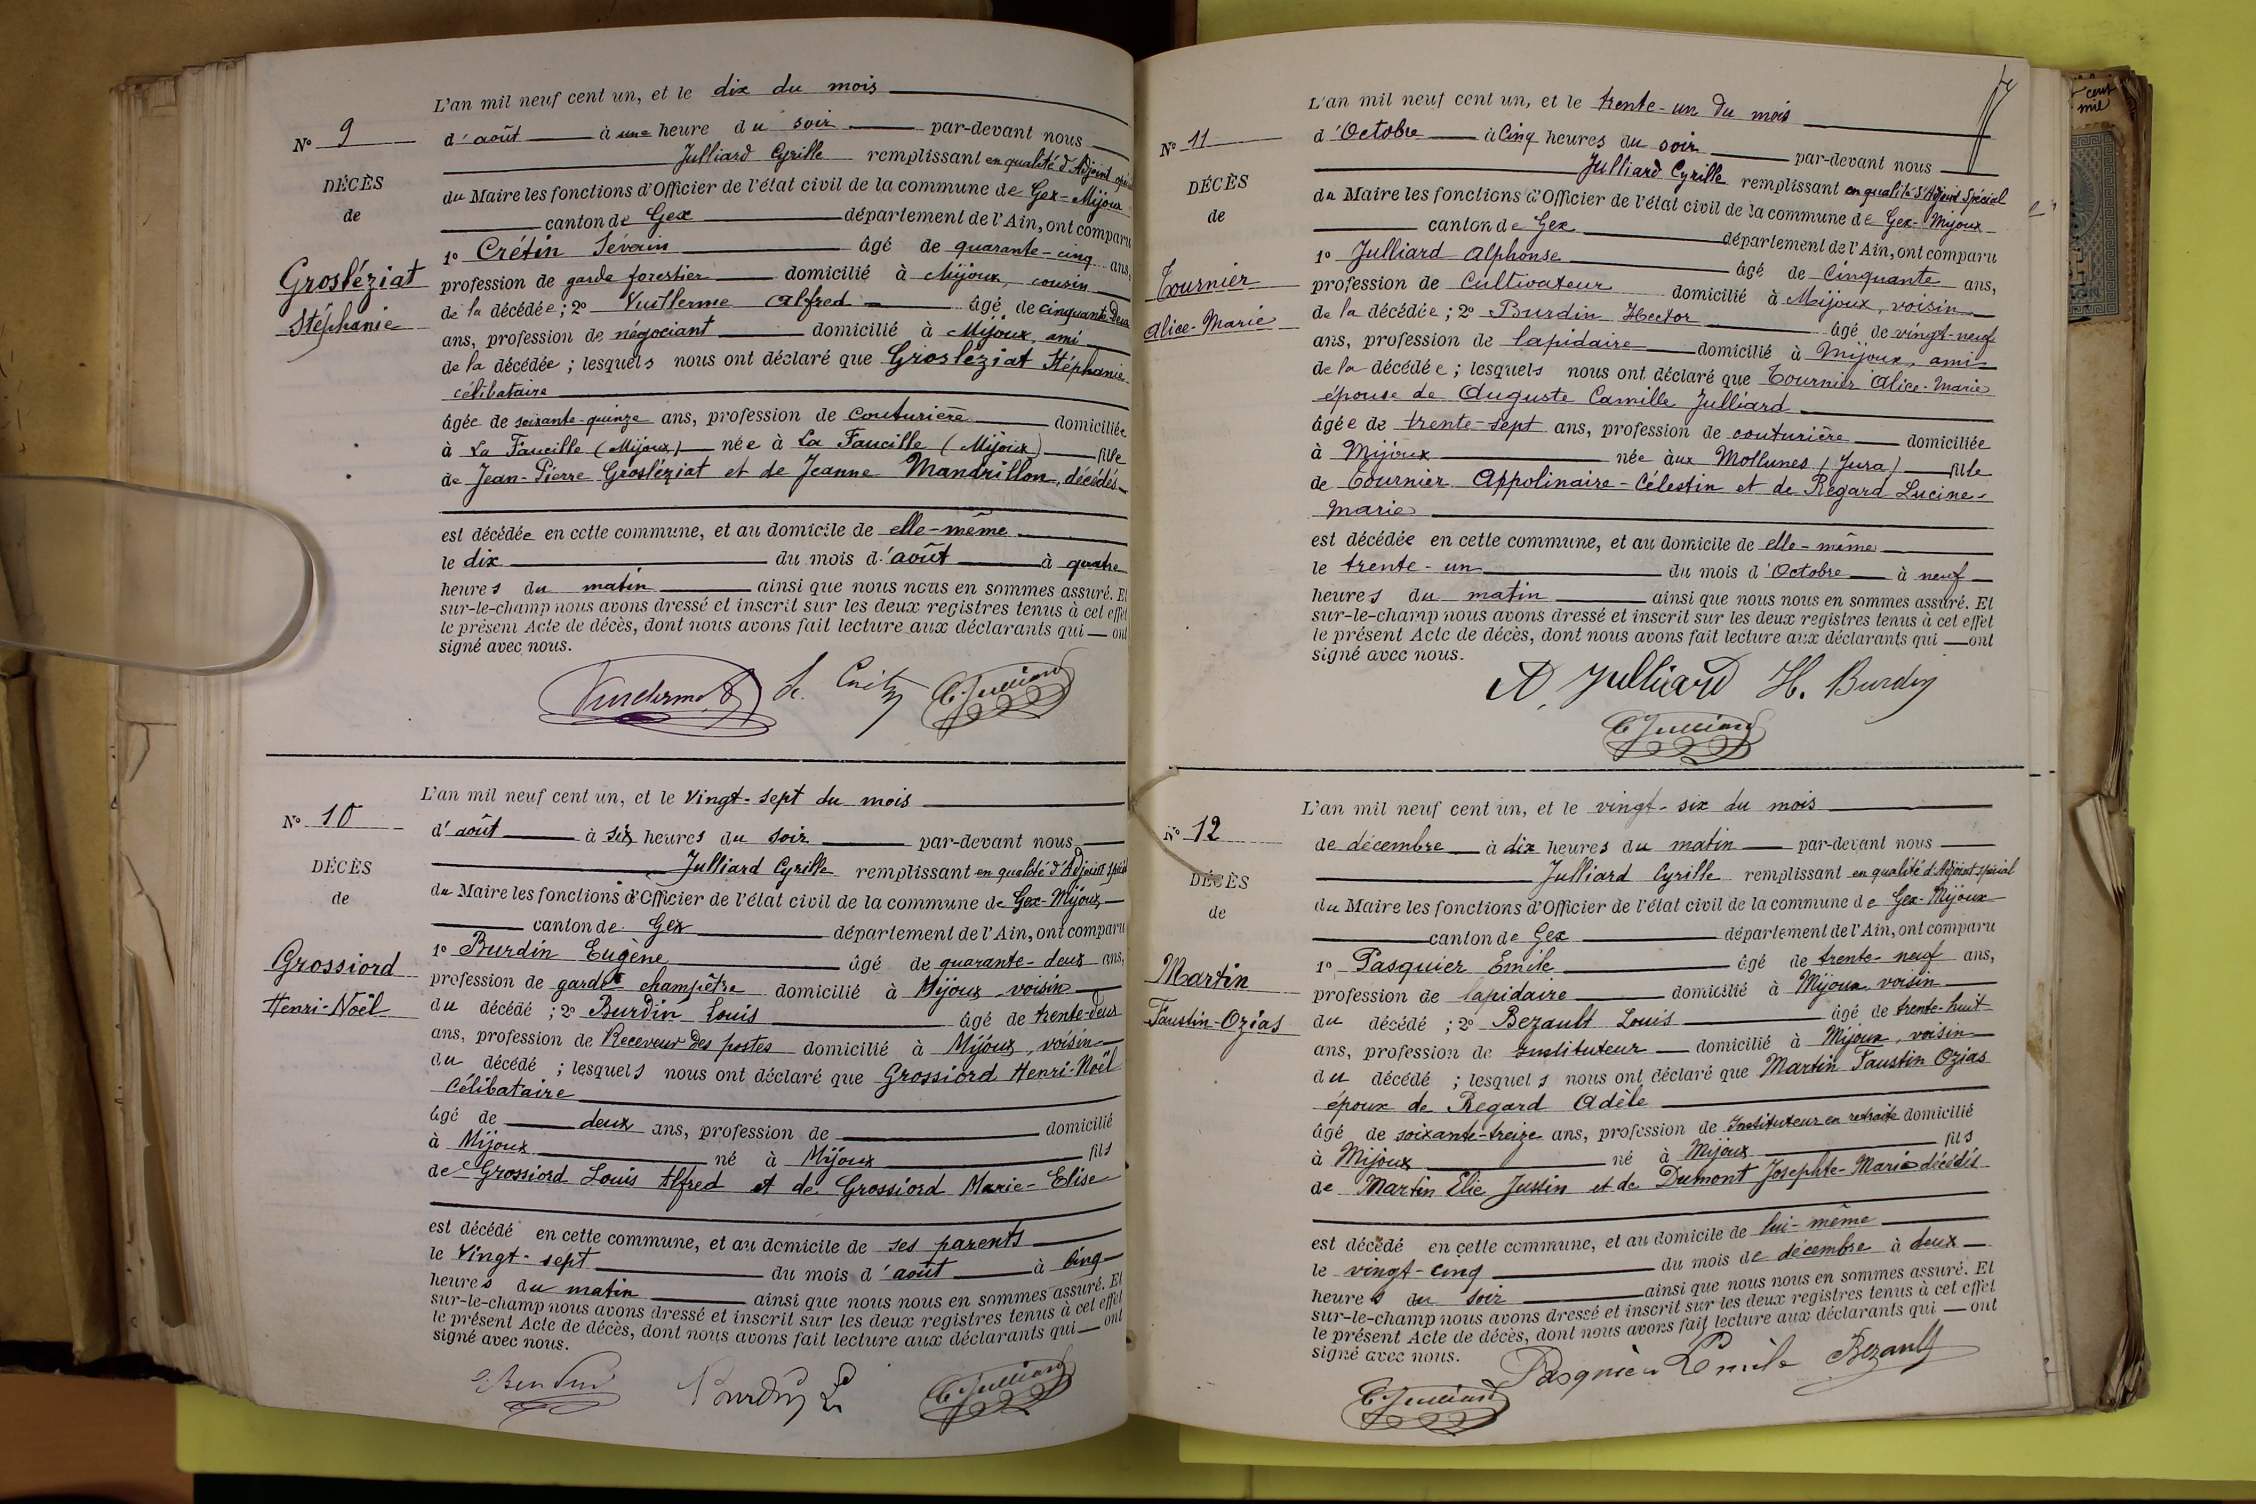 L'an mil neuf cent un, et le dix du mois
N° 9
d'août à une heure du soir par-devant nous
Julliard Cyrille remplissant en qualité d'Adjoint spécial
DÉCÈS
du Maire les fonctions d'Officier de l'état civil de la commune de Gex-Mijoux
de
canton de Gex département de l'Ain, ont comparu
1° Crétin Séverin âgé de quarante-cinq ans,
Grosléziat
profession de garde forestier domicilié à Mijoux, cousin
Stéphanie
de la décédée; 2° Vuillerme Alfred âgé de cinquante deux
ans, profession de négociant domicilié à Mijoux, ami
de la décédée; lesquels nous ont déclaré que Grosléziat Stéphanie
célibataire
âgée de soixante-quinze ans, profession de couturière domiciliée
à La Faucille (Mijoux) née à La Faucille (Mijoux) fille
de Jean-Pierre Grosléziat et de Jeanne Mandrillon, décédés
est décédée en cette commune, et au domicile de elle-même
le dix du mois d'août à quatre
heures du matin ainsi que nous nous en sommes assuré. Et
sur-le-champ nous avons dressé et inscrit sur les deux registres tenus à cet effet
le présent Acte de décès, dont nous avons fait lecture aux déclarants qui ont
signé avec nous.
C. Julliard
L'an mil neuf cent un, et le vingt-sept du mois
N° 10
d'août à six heures du soir par-devant nous
Julliard Cyrille remplissant en qualité d'Adjoint spécial
DÉCÈS
du Maire les fonctions d'Officier de l'état civil de la commune de Gex-Mijoux
de
canton de Gex département de l'Ain, ont comparu
1° Burdin Eugène âgé de quarante-deux ans,
Grossiord
profession de garde champêtre domicilié à Mijoux voisin
Henri-Noël
du décédé; 2° Burdin Louis âgé de trente-deux
ans, profession de Receveur des postes domicilié à Mijoux, voisin
du décédé; lesquels nous ont déclaré que Grossiord Henri-Noël
Célibataire
âgé de deux ans, profession de domicilié
à Mijoux né à Mijoux fils
de Grossiord Louis Alfred et de Grossiord Marie-Elise
est décédé en cette commune, et au domicile de ses parents
le Vingt-sept du mois d'août à cinq
heures du matin ainsi que nous nous en sommes assuré. Et
sur-le-champ nous avons dressé et inscrit sur les deux registres tenus à cet effet
le présent Acte de décès, dont nous avons fait lecture aux déclarants qui ont
signé avec nous.
Burdin L
C. Julliard
L'an mil neuf cent un, et le trente-un du mois
N° 11
d'Octobre à Cinq heures du soir par-devant nous
Julliard Cyrille remplissant en qualité d'Adjoint Spécial
DÉCÈS
du Maire les fonctions d'Officier de l'état civil de la commune de Gex-Mijoux
de
canton de Gex département de l'Ain, ont comparu
1° Julliard Alphonse âgé de Cinquante ans,
Tournier
profession de Cultivateur domicilié à Mijoux, voisin
Alice-Marie
de la décédée; 2° Burdin Hector âgé de vingt-neuf
ans, profession de lapidaire domicilié à Mijoux, ami
de la décédée; lesquels nous ont déclaré que Tournier Alice-Marie
épouse de Auguste Camille Julliard
âgée de trente-sept ans, profession de couturière domiciliée
à Mijoux née aux Mollunes (Jura) fille
de Tournier Appolinaire-Célestin et de Regard Lucine-
Marie
est décédée en cette commune, et au domicile de elle-même
le trente-un du mois d'Octobre à neuf
heures du matin ainsi que nous nous en sommes assuré. Et
sur-le-champ nous avons dressé et inscrit sur les deux registres tenus à cet effet
le présent Acte de décès, dont nous avons fait lecture aux déclarants qui ont
signé avec nous.
A. Julliard H. Burdin
C. Julliard
L'an mil neuf cent un, et le vingt-six du mois
N° 12
de décembre à dix heures du matin par-devant nous
Julliard Cyrille remplissant en qualité d'Adjoint spécial
DÉCÈS
du Maire les fonctions d'Officier de l'état civil de la commune de Gex-Mijoux
de
canton de Gex département de l'Ain, ont comparu
1° Pasquier Emile âgé de trente-neuf ans,
Martin
profession de lapidaire domicilié à Mijoux voisin
Faustin-Ozias
du décédé; 2° Bezault Louis âgé de trente-huit
ans, profession de instituteur domicilié à Mijoux, voisin
du décédé; lesquels nous ont déclaré que Martin Faustin Ozias
époux de Regard Adèle
âgé de soixante-treize ans, profession de Instituteur en retraite domicilié
à Mijoux né à Mijoux fils
de Martin Elie Jussin et de Dumont Josephte-Marie décédés
est décédé en cette commune, et au domicile de lui-même
le vingt-cinq du mois de décembre à deux
heures du soir ainsi que nous nous en sommes assuré. Et
sur-le-champ nous avons dressé et inscrit sur les deux registres tenus à cet effet
le présent Acte de décès, dont nous avons fait lecture aux déclarants qui ont
signé avec nous.
Pasquier Emile Bezault
C. Julliard
cent
mil